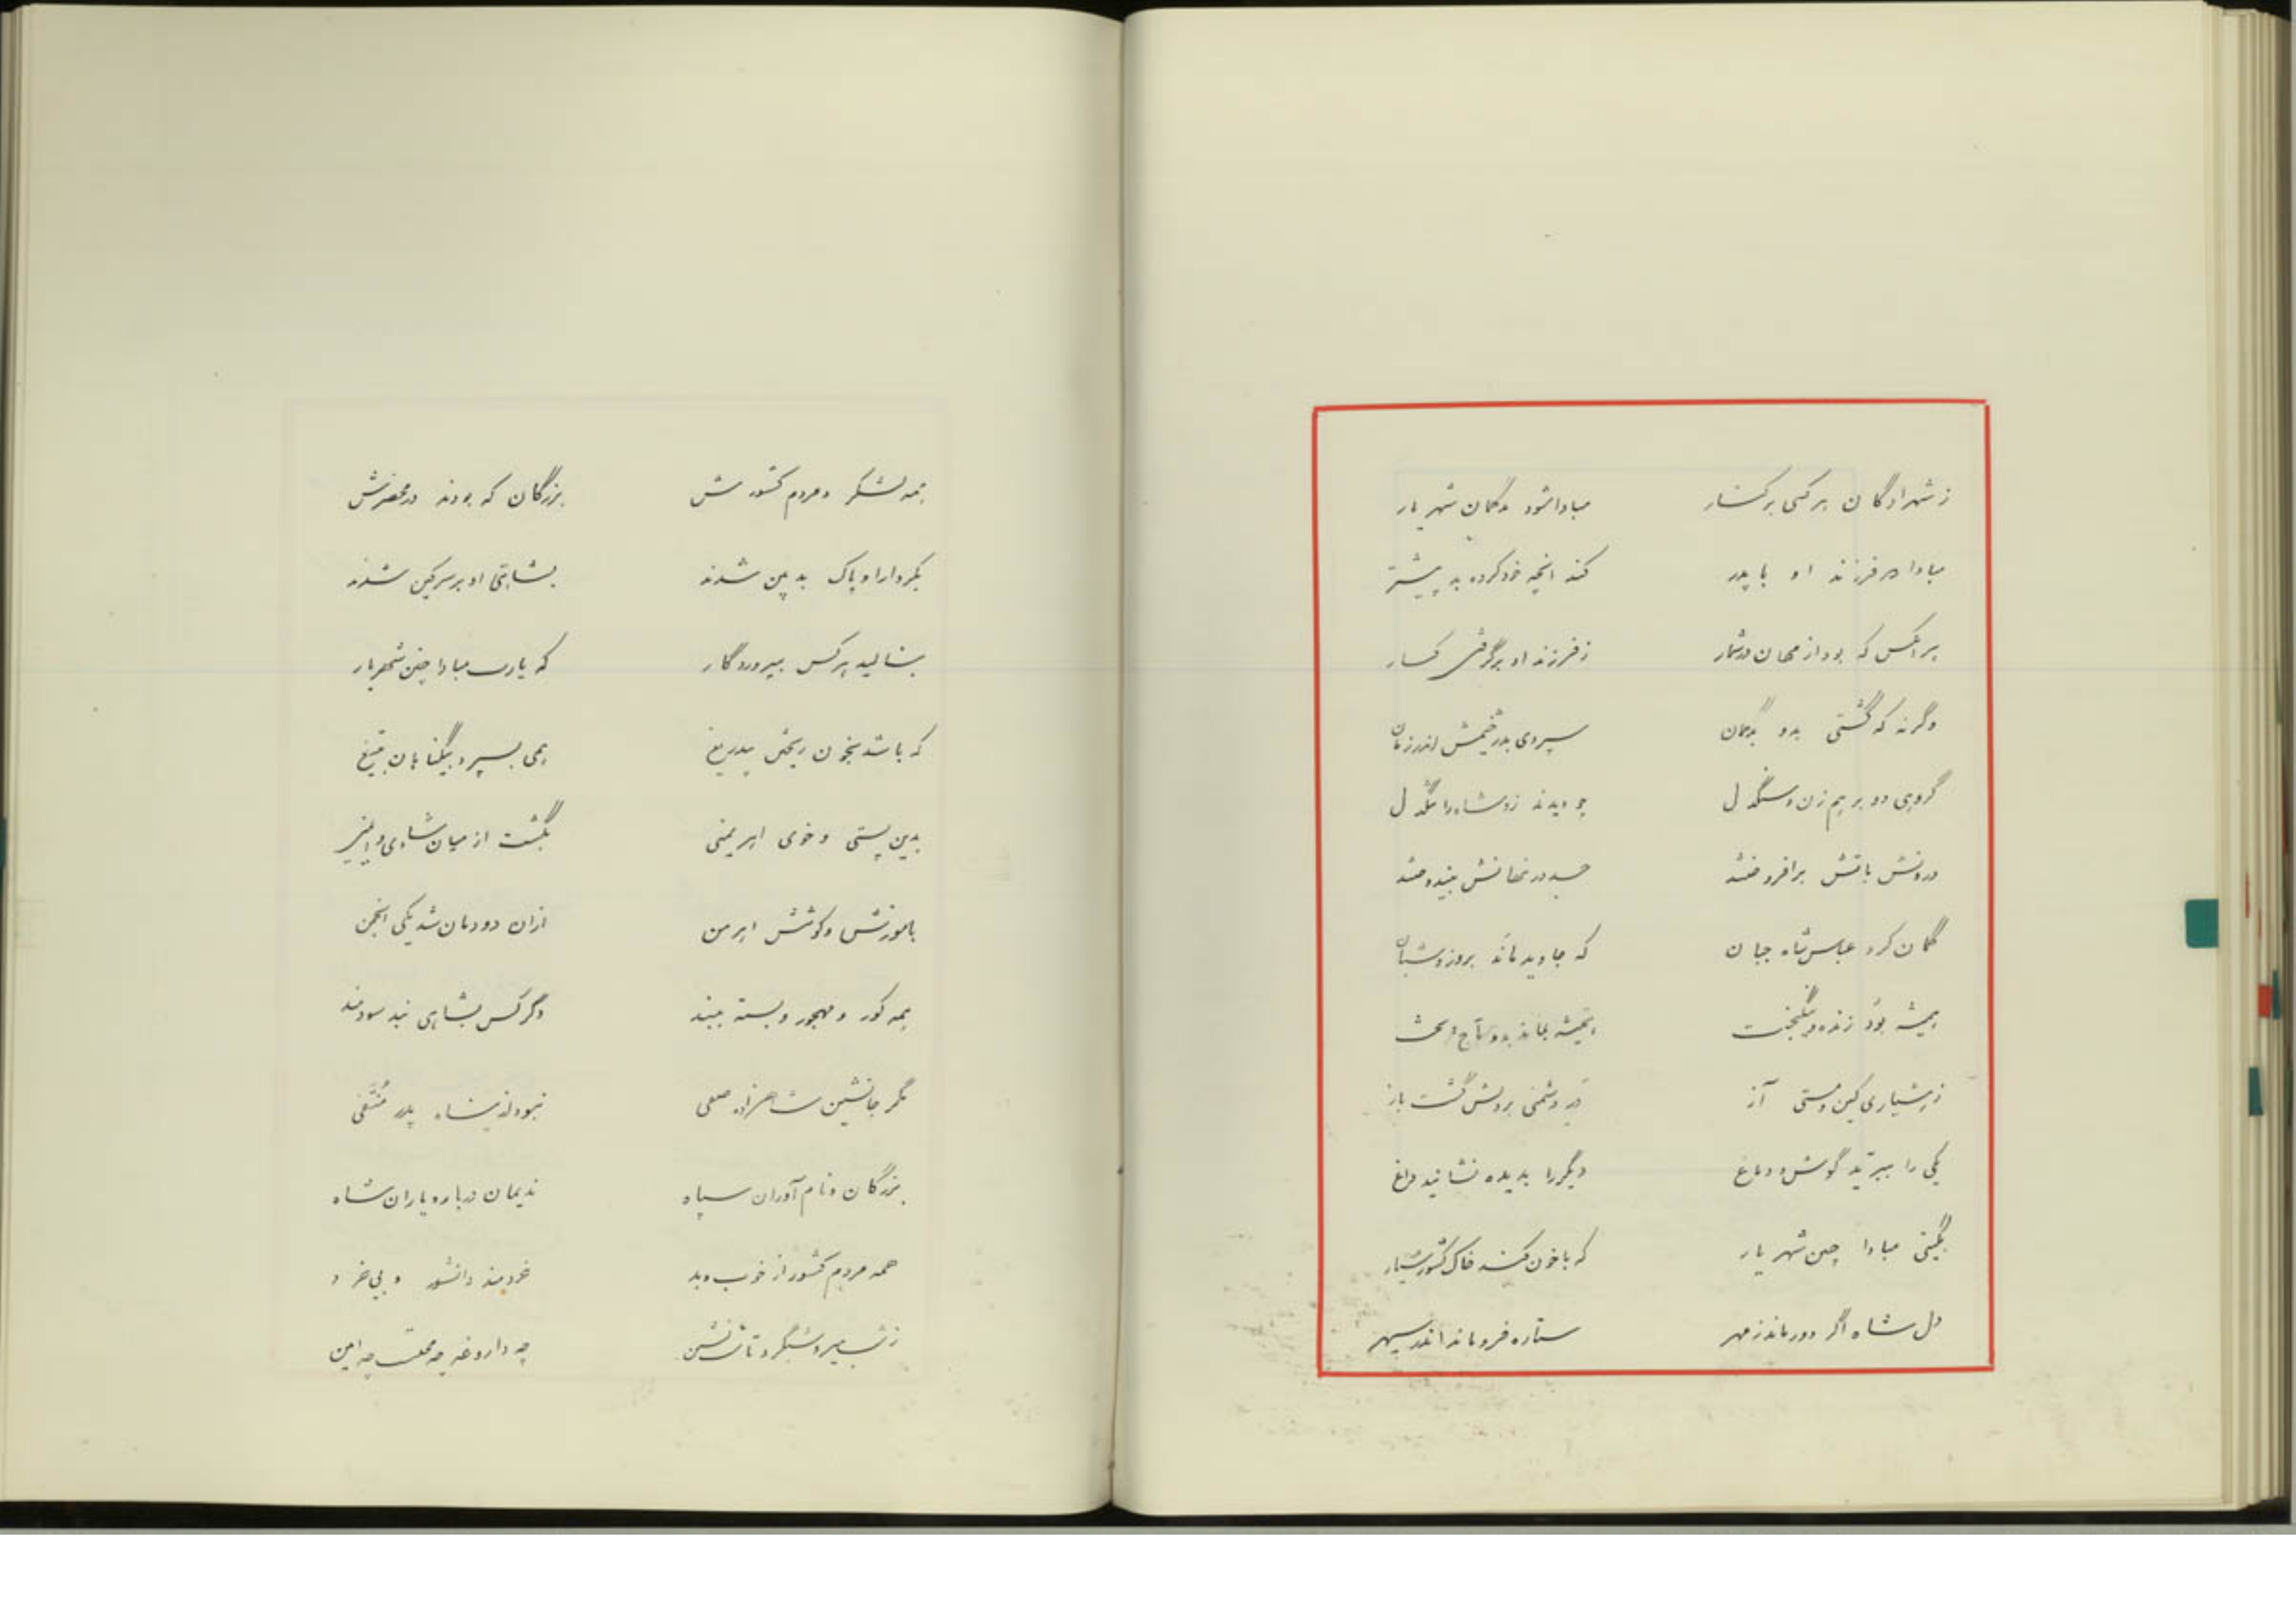 ز شهزادگان هر کسی بر کنار مبادا شود بدگمان شهریار
مبادا که فرزند او با پدر کند آنچه خود کرده بد پیشتر
هر آنکس که بود از مهان در شمار ز فرزند او بر گرفتی کنار
وگرنه که گشتی بدو بدگمان سپردی بدژخیمش اندر زمان
گروهی دو بر هم زن و سنگدل چو دیدند زو شاه را تنگدل
درونش بآتش برافروختند حسد در نهانش بیندوختند
گمان کرد عباس شاه جهان که جاوید ماند بروز و شبان
همیشه بود زنده و نیکبخت همیشه بماند بدو تاج و تخت
ز هشیاری کین و مستی آز در دشمنی بر دلش گشت باز
یکی را ببرید گوش و دماغ دیگر را بدیده نشانید داغ
بگیتی مبادا چنین شهریار که با خون کند خاک کشور شیار
دل شاه اگر دور ماند ز مهر ستاره فرو ماند اندر سپهر
همه لشکر و مردم کشورش بزرگان که بودند در محضرش
بکردار او پاک بدبین شدند بشاهی او بر سر کین شدند
بنالید هر کس بپروردگار که یارب مبادا چنین شهریار
که باشد بخون ریختن بیدریغ همی بسپرد بیگناهان بتیغ
بدین پستی و خوی اهریمنی بگشت از میان شادی و ایمنی
بآموزش و کوشش اهرمن از آن دودمان شد یکی انجمن
همه کور و مهجور و بسته ببند دگر کس بشاهی نبد سودمند
مگر جانشین شاهزاده صفی نبود از نیشاه پدر منتفی
بزرگان و نام آوران سپاه ندیمان دربار و یاران شاه
همه مردم کشور از خوب و بد خردمند دانشور و بی خرد
ز شبمیر و شبگرد تا شب نشین چه داروغه چه محتسب چه امین